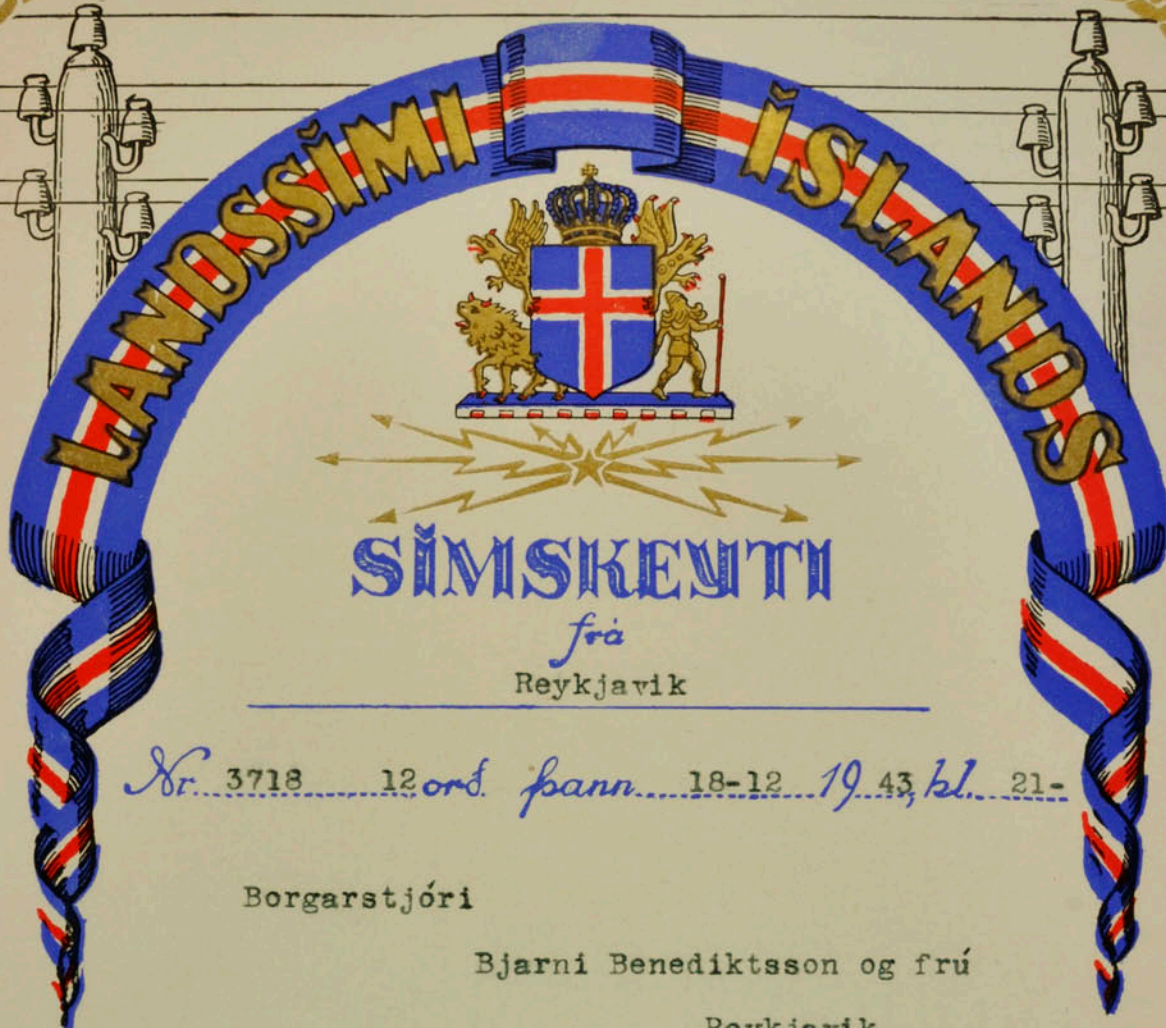 LANDSSÍMI ÍSLANDS
SÍMSKEYTI
frá
Reykjavik
Nr. 3718 12 orð. þann 18-12 19 43, kl. 21-
Borgarstjóri
Bjarni Benediktsson og frú
Reykjavik